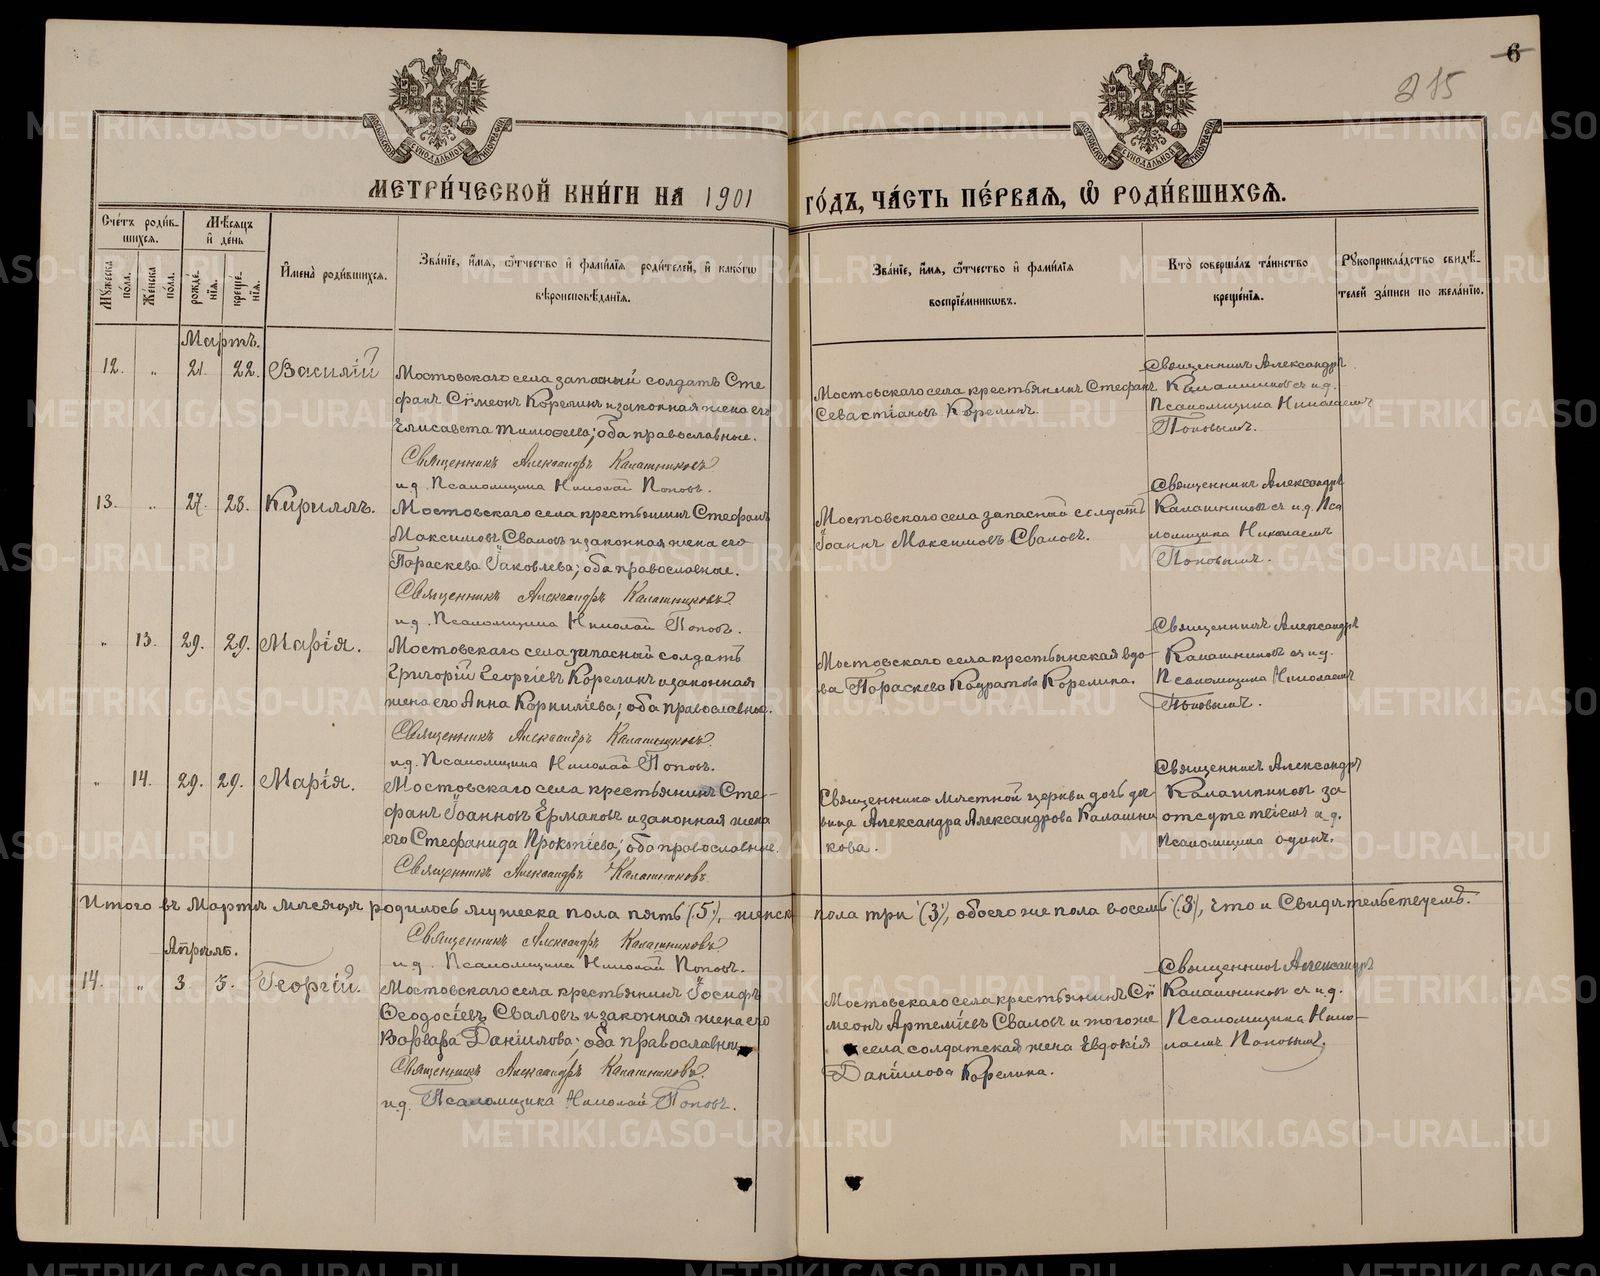 6
215
МОСКОВСКОЙ СѴНОДАЛЬНОЙ ТИПОГРАФІИ
МОСКОВСКОЙ СѴНОДАЛЬНОЙ ТИПОГРАФІИ
МЕТРИ́ЧЕСКОЙ КНИ́ГИ НА 1901 ГО́ДЪ, ЧА́СТЬ ПЕ́РВАѦ, Ѡ҆ РОДИ́ВШИХСѦ.
Сче́тъ роди́в-
шихсѧ.
Мѣ́сѧцъ
и҆ де́нь
Мꙋ́жеска
по́ла.
Же́нска
по́ла.
рожде́-
нїѧ.
креще́-
нїѧ.
И҆мена̀ роди́вшихсѧ.
Зва́нїе, и҆́мѧ, ѻ҆́тчество и҆ фамі́лїѧ роди́телей, и҆ како́гѡ
вѣроисповѣ́данїѧ.
Зва́нїе, и҆́мѧ, ѻ҆́тчество и҆ фамі́лїѧ
воспрїе́мникѡвъ.
Кто̀ соверша́лъ та́инство
креще́нїѧ.
Рꙋкоприкла́дство свидѣ́-
телей за́писи по жела́нїю.
Мартъ.
12. „ 21. 22. Василій
Мостовскаго села запасный солдатъ Сте
фанъ Сѵмеонъ Корелинъ и законная жена его
Елисавета Тимоѳеева; оба православные.
Священникъ Александръ Калашниковъ
и.д. Псаломщика Николай Поповъ.
Мостовскаго села крестьянинъ Стефанъ
Севастіановъ Корелинъ.
Священникъ Александръ
Калашниковъ съ и.д.
Псаломщика Николаемъ
Поповымъ.
13. „ 27. 28. Кириллъ.
Мостовскаго села крестьянинъ Стефанъ
Максимовъ Сваловъ и законная жена его
Параскева Іаковлева; оба православные.
Священникъ Александръ Калашниковъ.
и.д. Псаломщика Николай Поповъ.
Мостовскаго села запасный солдатъ
Іоаннъ Максимовъ Сваловъ.
Священникъ Александръ
Калашниковъ съ и.д. Пса
ломщика Николаемъ
Поповымъ.
„ 13. 29. 29. Марія.
Мостовскаго села запасный солдатъ
Григорій Георгіевъ Корелинъ и законная
жена его Анна Корниліева; оба православные.
Священникъ Александръ Калашниковъ.
и.д. Псаломщика Николай Поповъ.
Мостовскаго села крестьянская вдо-
ва Параскева Кодратова Корелина.
Священникъ Александръ
Калашниковъ съ и.д.
Псаломщика Николаемъ
Поповымъ.
„ 14. 29. 29. Марія.
Мостовскаго села крестьянинъ Сте-
фанъ Іоанновъ Ермаковъ и законная жена
его Стефанида Прокопіева; оба православные.
Священникъ Александръ Калашниковъ.
Священника мѣстной церкви дочь дѣ
вица Александра Александрова Калашни
кова.
Священникъ Александръ
Калашниковъ за
отсутствіемъ и.д.
Псаломщика одинъ.
Итого въ Мартѣ мѣсяцѣ родилось мужеска пола пять (5), женска пола три (3), обоего же пола восемь (8), что и Свидѣтельствуемъ.
Священникъ Александръ Калашниковъ
и.д. Псаломщика Николай Поповъ.
Апрѣль.
14. „ 3. 5. Георгій.
Мостовскаго села крестьянинъ Іосифъ
Ѳеодосіевъ Сваловъ и законная жена его
Варвара Даніилова; оба православны
Священникъ Александръ Калашниковъ.
и.д. Псаломщика Николай Поповъ.
Мостовскаго села крестьянинъ Сѵ
меонъ Артеміевъ Сваловъ и тогоже
села солдатская жена Евдокія
Даніилова Корелина.
Священникъ Александръ
Калашниковъ съ и.д.
Псаломщика Нико-
лаемъ Поповымъ.
METRIKI.GASO-URAL.RU